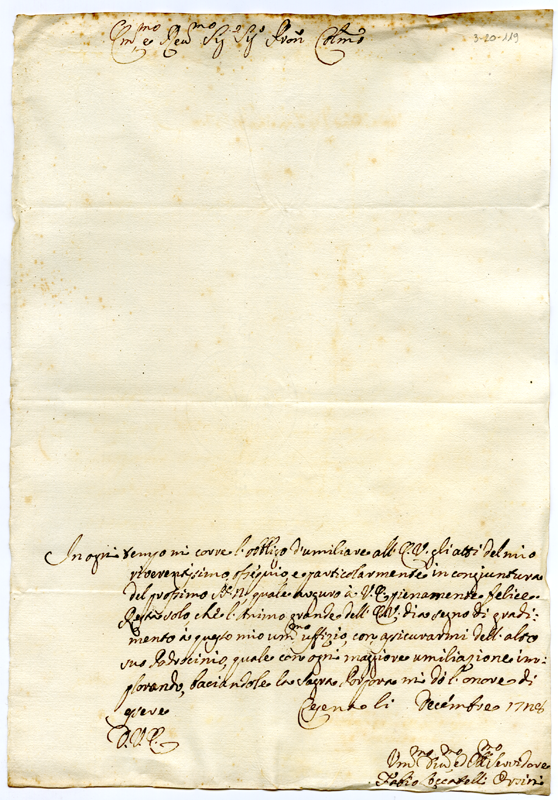 Em.mo e Rev.mo Sig.r Sig.r Pron Col.mo
3-20-119
In ogni tempo mi corre l'obbligo d'umiliare all'E.V. gli atti del mio
riverentissimo ossequio, e particolarmente in congiuntura
del prossimo St. N. quale auguro à V.E. pienamente felice
Resta solo che l'Animo grande dell'E.V. dia segno di gradi-
mento à questo mio um.mo uffizio, con assicurarmi dell'alto
suo Padrocinio, quale con ogni maggiore umiliazione im-
plorando, baciandole la Sagra Porpora mi dò l'onore di
essere Cesena li Decembre
D.V.E.
Um.mo Dev.mo ed Servidore
Fabio Orsini